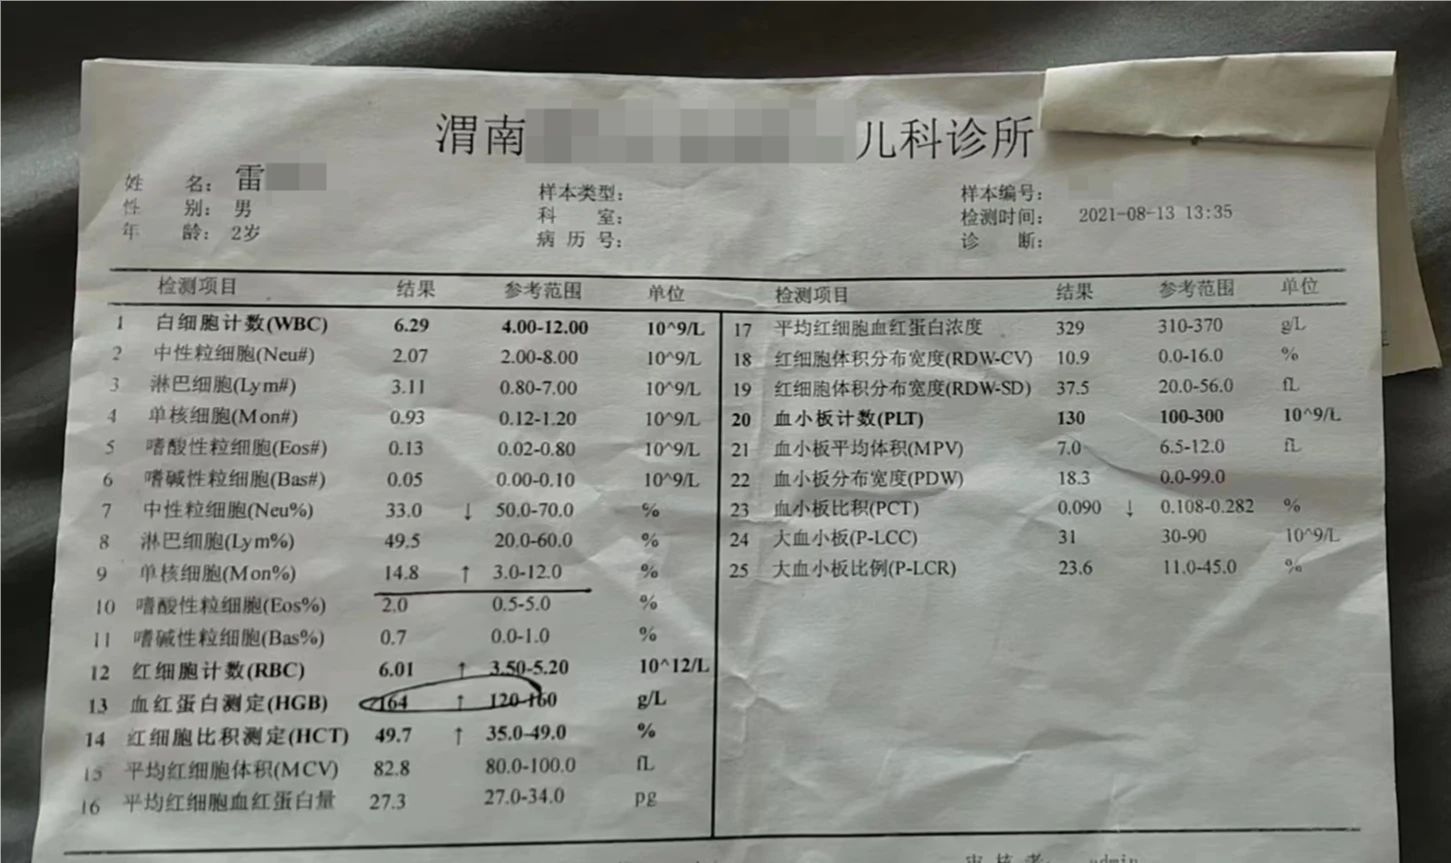 渭南 儿科诊所
姓 名： 雷 样本类型： 样本编号：
性 别： 男 科 室： 检测时间： 2021-08-13 13:35
年 龄： 2岁 病 历 号： 诊 断：
检测项目 结果 参考范围 单位 检测项目 结果 参考范围 单位
1 白细胞计数(WBC) 6.29 4.00-12.00 10^9/L 17 平均红细胞血红蛋白浓度 329 310-370 g/L
2 中性粒细胞(Neu#) 2.07 2.00-8.00 10^9/L 18 红细胞体积分布宽度(RDW-CV) 10.9 0.0-16.0 %
3 淋巴细胞(Lym#) 3.11 0.80-7.00 10^9/L 19 红细胞体积分布宽度(RDW-SD) 37.5 20.0-56.0 fL
4 单核细胞(Mon#) 0.93 0.12-1.20 10^9/L 20 血小板计数(PLT) 130 100-300 10^9/L
5 嗜酸性粒细胞(Eos#) 0.13 0.02-0.80 10^9/L 21 血小板平均体积(MPV) 7.0 6.5-12.0 fL
6 嗜碱性粒细胞(Bas#) 0.05 0.00-0.10 10^9/L 22 血小板分布宽度(PDW) 18.3 0.0-99.0
7 中性粒细胞(Neu%) 33.0 ↓ 50.0-70.0 % 23 血小板比积(PCT) 0.090 ↓ 0.108-0.282 %
8 淋巴细胞(Lym%) 49.5 20.0-60.0 % 24 大血小板(P-LCC) 31 30-90 10^9/L
9 单核细胞(Mon%) 14.8 ↑ 3.0-12.0 % 25 大血小板比例(P-LCR) 23.6 11.0-45.0 %
10 嗜酸性粒细胞(Eos%) 2.0 0.5-5.0 %
11 嗜碱性粒细胞(Bas%) 0.7 0.0-1.0 %
12 红细胞计数(RBC) 6.01 ↑ 3.50-5.20 10^12/L
13 血红蛋白测定(HGB) 164 ↑ 120-160 g/L
14 红细胞比积测定(HCT) 49.7 ↑ 35.0-49.0 %
15 平均红细胞体积(MCV) 82.8 80.0-100.0 fL
16 平均红细胞血红蛋白量 27.3 27.0-34.0 pg
审 核 者： admin